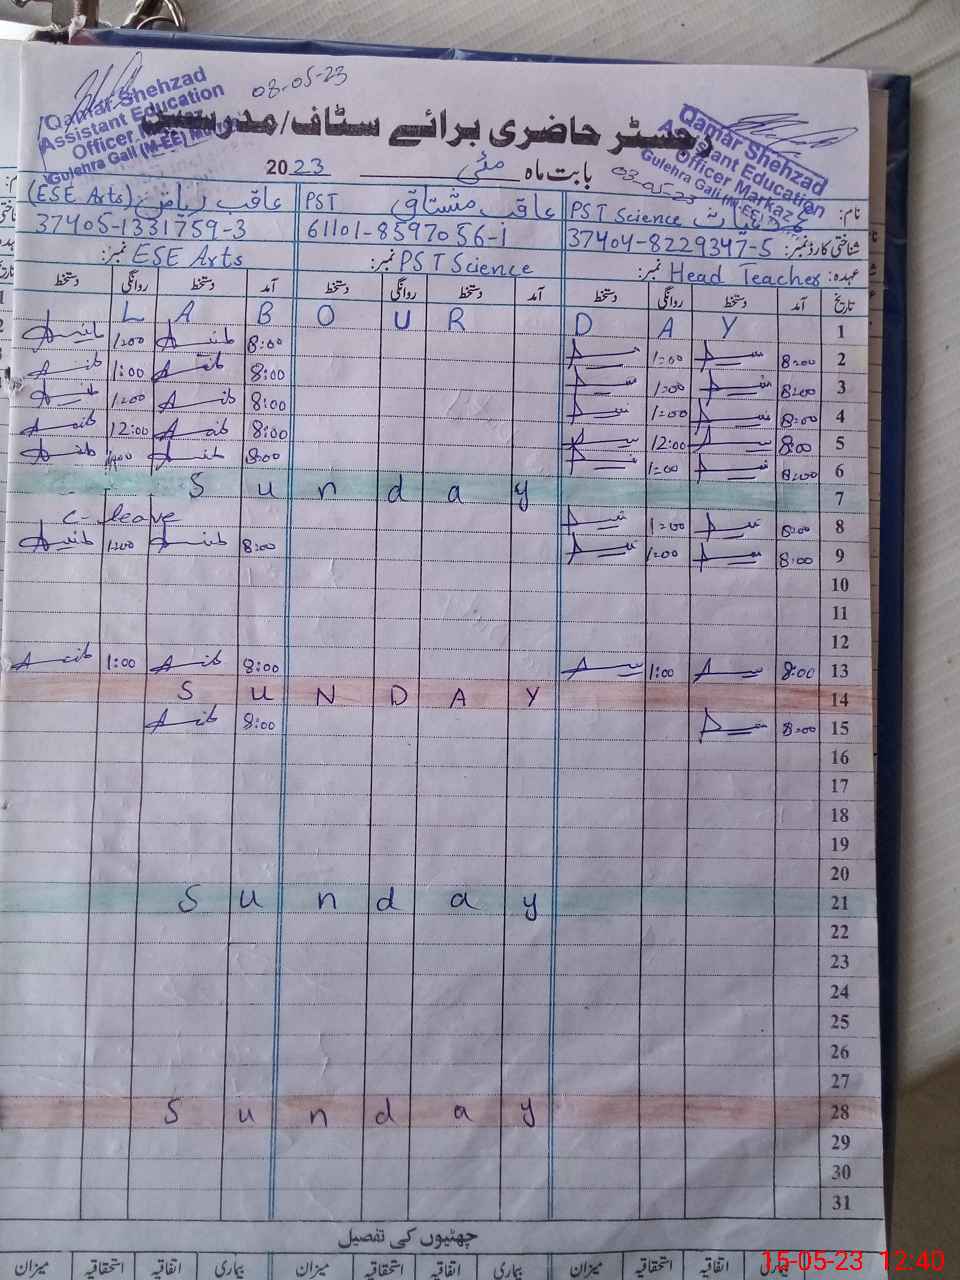 Qamar Shehzad
Assistant Education
Officer Markaz
Gulehra Gali (M-EE)
08-05-23
Qamar Shehzad
Assistant Education
Officer Markaz
Gulehra Gali (M-EE)
08-05-23
رجسٹر حاضری برائے سٹاف/مدرسین
بابت ماہ مئی 2023
نام: PST Science
عاقب مشتاق PST
عاقب ریاض (ESE Arts)
شناختی کارڈ نمبر: 37404-8229347-5
61101-8597056-1
37405-1331759-3
عہدہ: Head Teacher نمبر: PST Science نمبر: ESE Arts نمبر:
تاریخ آمد دستخط روانگی دستخط آمد دستخط روانگی دستخط آمد دستخط روانگی دستخط
1 L A B O U R D A Y
2 8:00 1:00 8:00 1:00
3 8:00 1:00 8:00 1:00
4 8:00 1:00 8:00 1:00
5 8:00 12:00 8:00 12:00
6 8:00 1:00 8:00
7 S u n d a y
8 8:00 1:00 C-leave
9 8:00 1:00 8:00 1:00
10
11
12
13 8:00 1:00 8:00 1:00
14 S u N D A Y
15 8:00 8:00
16
17
18
19
20
21 S u n d a y
22
23
24
25
26
27
28 S u n d a y
29
30
31
چھٹیوں کی تفصیل
بیماری اتفاقیہ استحقاقیہ میزان بیماری اتفاقیہ استحقاقیہ میزان بیماری اتفاقیہ استحقاقیہ میزان
15-05-23 12:40